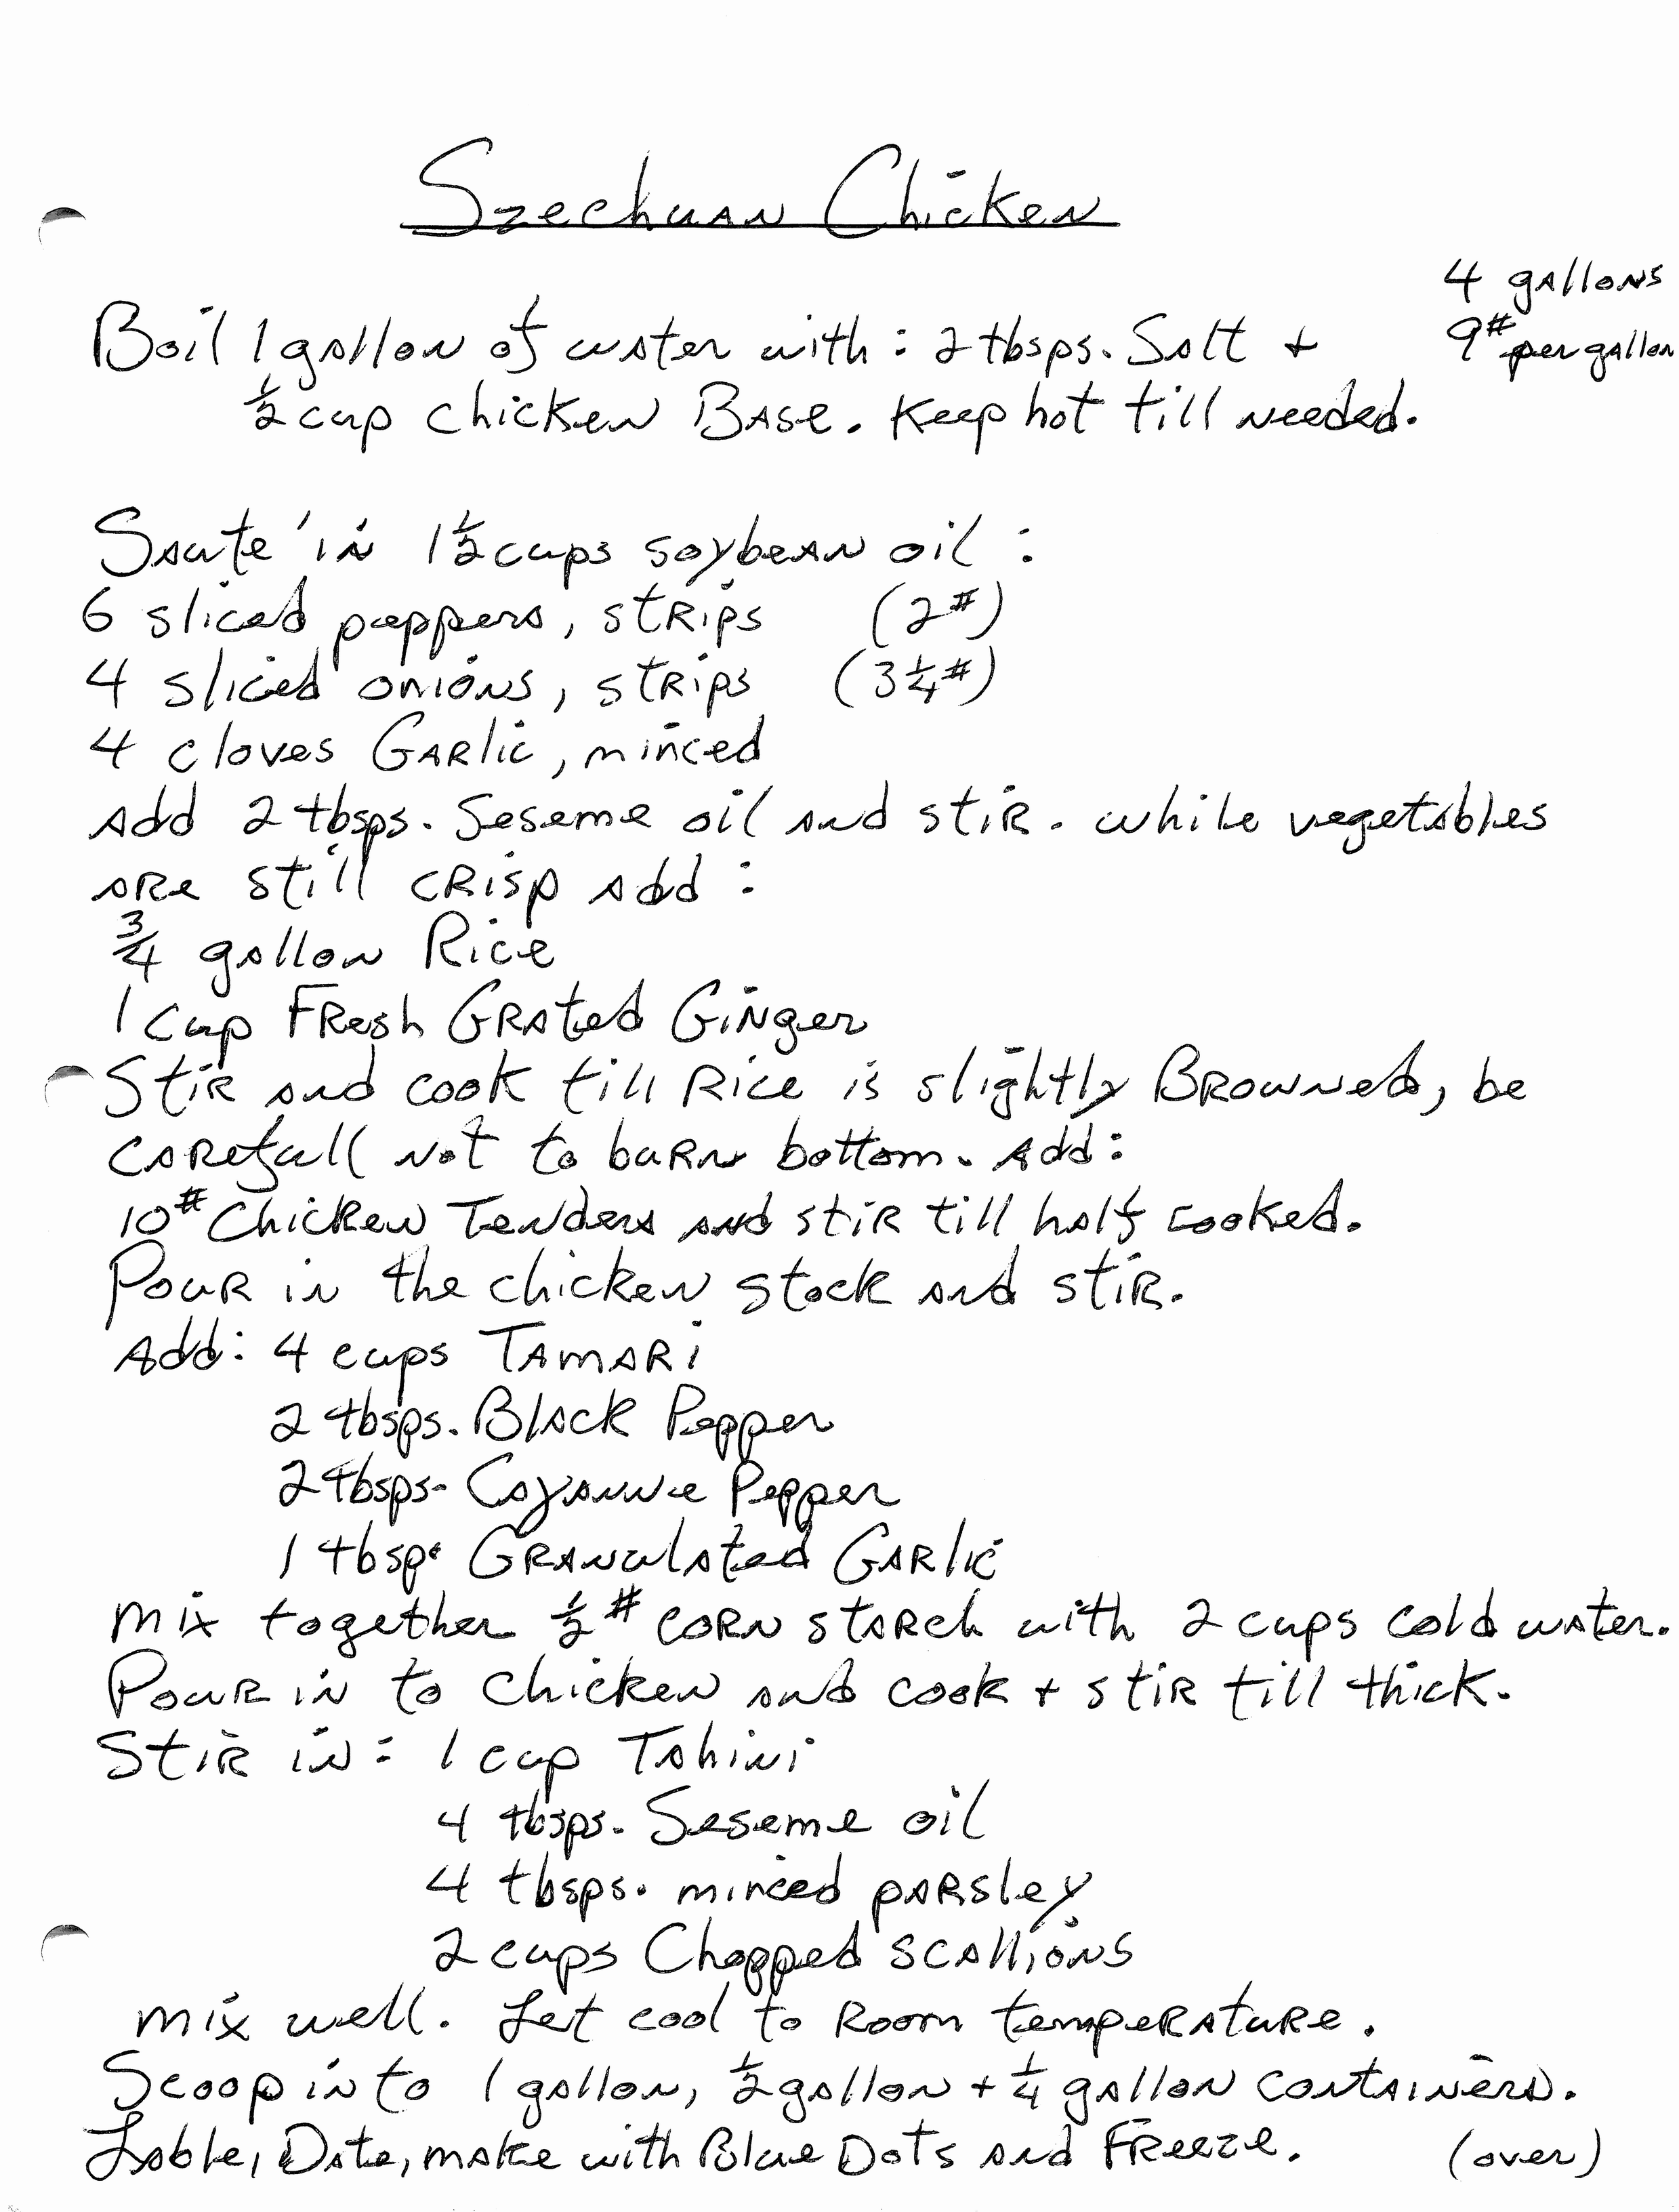 Szechuan Chicken
4 gallons
9# per gallon
Boil 1 gallon of water with : 2 tbsps. Salt +
½ cup chicken Base. Keep hot till needed.
Saute' in 1½ cups soybean oil :
6 sliced peppers, strips (2#)
4 sliced onions, strips (3¼#)
4 cloves Garlic, minced
Add 2 tbsps. Seseme oil and stir. while vegetables
are still crisp add :
¾ gallon Rice
1 cup Fresh Grated Ginger
Stir and cook till Rice is slightly Browned, be
carefull not to burn bottom. Add:
10# Chicken Tenders and stir till half cooked.
Pour in the chicken stock and stir.
Add: 4 cups Tamari
2 tbsps. Black Pepper
2 tbsps. Cayanne Pepper
1 tbsp. Granulated Garlic
mix together ½# corn starch with 2 cups cold water.
Pour in to chicken and cook + stir till thick.
Stir in: 1 cup Tahini
4 tbsps. Seseme oil
4 tbsps. minced parsley
2 cups Chopped scallions
mix well. Let cool to Room temperature.
Scoop into 1 gallon, ½ gallon + ¼ gallon containers.
Lable, Date, make with Blue Dots and Freeze. (over)